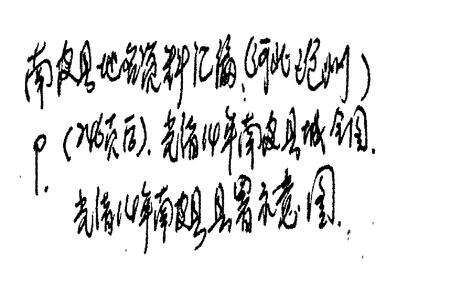 南皮县地名资料汇编(河北沧州)
P.(246页后).光绪14年南皮县城全图.
光绪14年南皮县县署示意图.